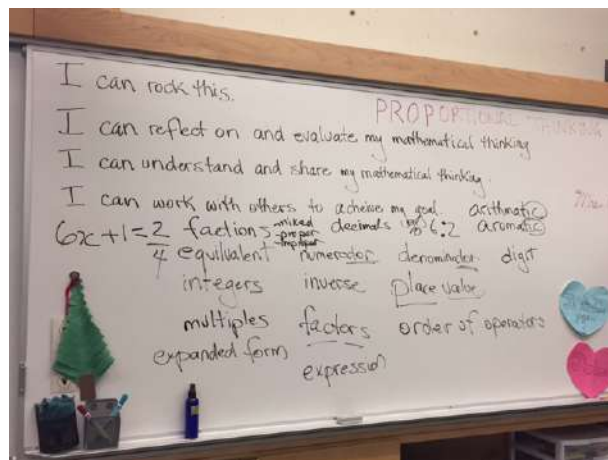 I can rock this.
PROPORTIONAL THINKING
I can reflect on and evaluate my mathematical thinking
I can understand and share my mathematical thinking.
I can work with others to acheive my goal. arithmatic
6x+1=2/4 factions mixed proper improper decimals 6:2 aromatic
equilvalent numerador denominador digit
integers inverse place value
multiples factors order of operators
expanded form expression